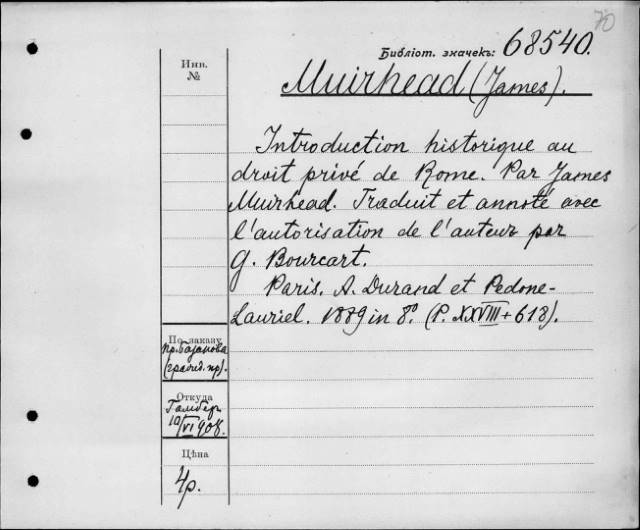 70
Библіот. значекъ: 68540.
Инв.
№
Muirhead (James).
Introduction historique au
droit privé de Rome. Par James
Muirhead. Traduit et annoté avec
l'autorisation de l'auteur par
G. Bourcart.
Paris. A. Durand et Pedone-
Lauriel. 1889 in 8º. (P. XXVIII + 618).
По заказу
пр. Базанова
(гражд. пр).
Откуда
10/VI 908.
Цѣна
4р.